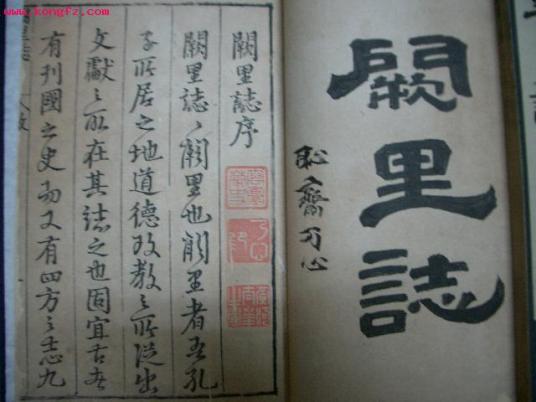 www.kongfz.com
闕里誌
恥齋
闕里誌序
闕里誌〻闕里也闕里者吾孔
子所居之地道德政教〻所從出
文獻〻所在其誌之也固宜古者
有列國之史而又有四方〻志九